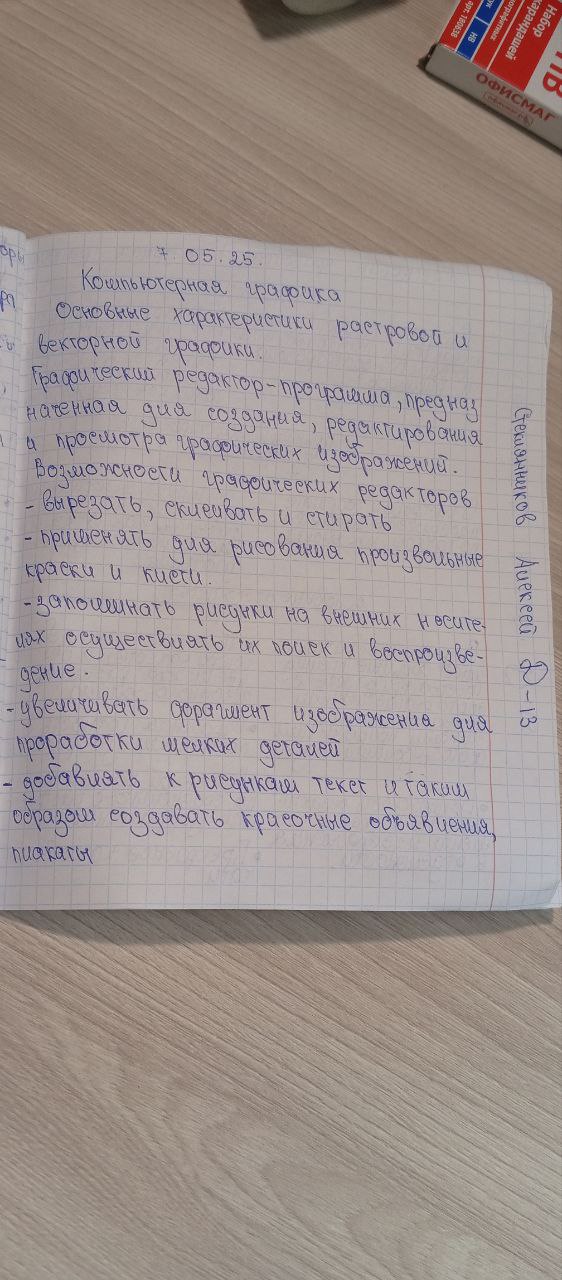 Набор
карандашей
арт. 180638
НВ
ОФИСМАГ
7.05.25.
Компьютерная графика
Основные характеристики растровой и
векторной графики.
Графический редактор-программа, предназ
наченная для создания, редактирования
и просмотра графических изображений.
Возможности графических редакторов
- вырезать, склеивать и стирать
- применять для рисования произвольные
краски и кисти.
- запоминать рисунки на внешних носите-
лях осуществлять их поиск и воспроизве-
дение.
- увеличивать фрагмент изображения для
проработки мелких деталей
- добавлять к рисункам текст и таким
образом создавать красочные объявления,
плакаты
Стеклянников Алексей Ф-13